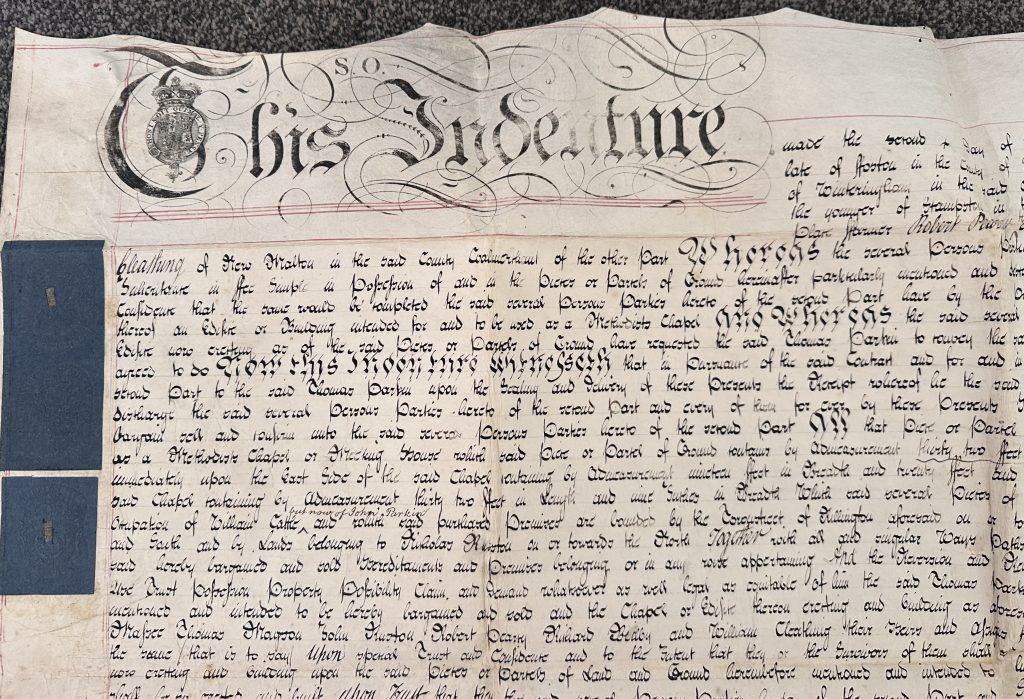 S.O.
This Indenture
made the second day of
late of Foston in the County of
of Winteringham in the said
the younger of in
place Farmer Robert Pearcy
Cleathing of New Malton in the said County Coalmerchant of the other part Whereas the several Persons
Inheritance in Fee Simple in Possession of and in the Pieces or Parcels of Ground hereinafter particularly mentioned and
Confidence that the same would be completed the said several Persons Parties hereto of the second Part have by the
thereof an Edifice or Building intended for and to be used as a Methodists Chapel And Whereas the said several
Edifice now erecting as of the said Pieces or Parcels of Ground have requested the said Thomas Parkin to convey the
agreed to do Now this Indenture Witnesseth that in pursuance of the said Contract and for and in
second part to the said Thomas Parkin upon the Sealing and Delivery of these Presents the Receipt whereof he the said
discharge the said several Persons Parties hereto of the second Part and every of them for ever by these Presents
bargain sell and confirm unto the said several Persons Parties hereto of the second part All that Piece or Parcel
as a Methodists Chapel or Meeting House which said Piece or Parcel of Ground contains by Admeasurement thirty two Feet
immediately upon the East Side of the said Chapel containing by Admeasurement nineteen Feet in Breadth and twenty Feet
said Chapel containing by Admeasurement thirty two Feet in Length and nine Inches in Breadth Which said several Pieces of
but now of John Parkin
Occupation of William and which said purchased Premises are bounded by the Townstreet of Rillington aforesaid on or
and South and by Lands belonging to Nicholas on or towards the North Together with all and singular Ways
said hereby bargained and sold Hereditaments and Premises belonging or in any wise appertaining And the Reversion and
Use Trust Possession Property Possibility Claim and Demand whatsoever as well legal as equitable of him the said Thomas
mentioned and intended to be hereby bargained and sold and the Chapel or Edifice thereon erecting and building as
Thomas Mayson John Robert Pearcy Richard and William Cleathing their Heirs and Assigns
the same that is to say Upon special Trust and Confidence and to the Intent that they or the Survivors of them shall
now erecting and building upon the said Pieces or Parcels of Land and Ground hereinbefore mentioned and intended to
upon Trust that they